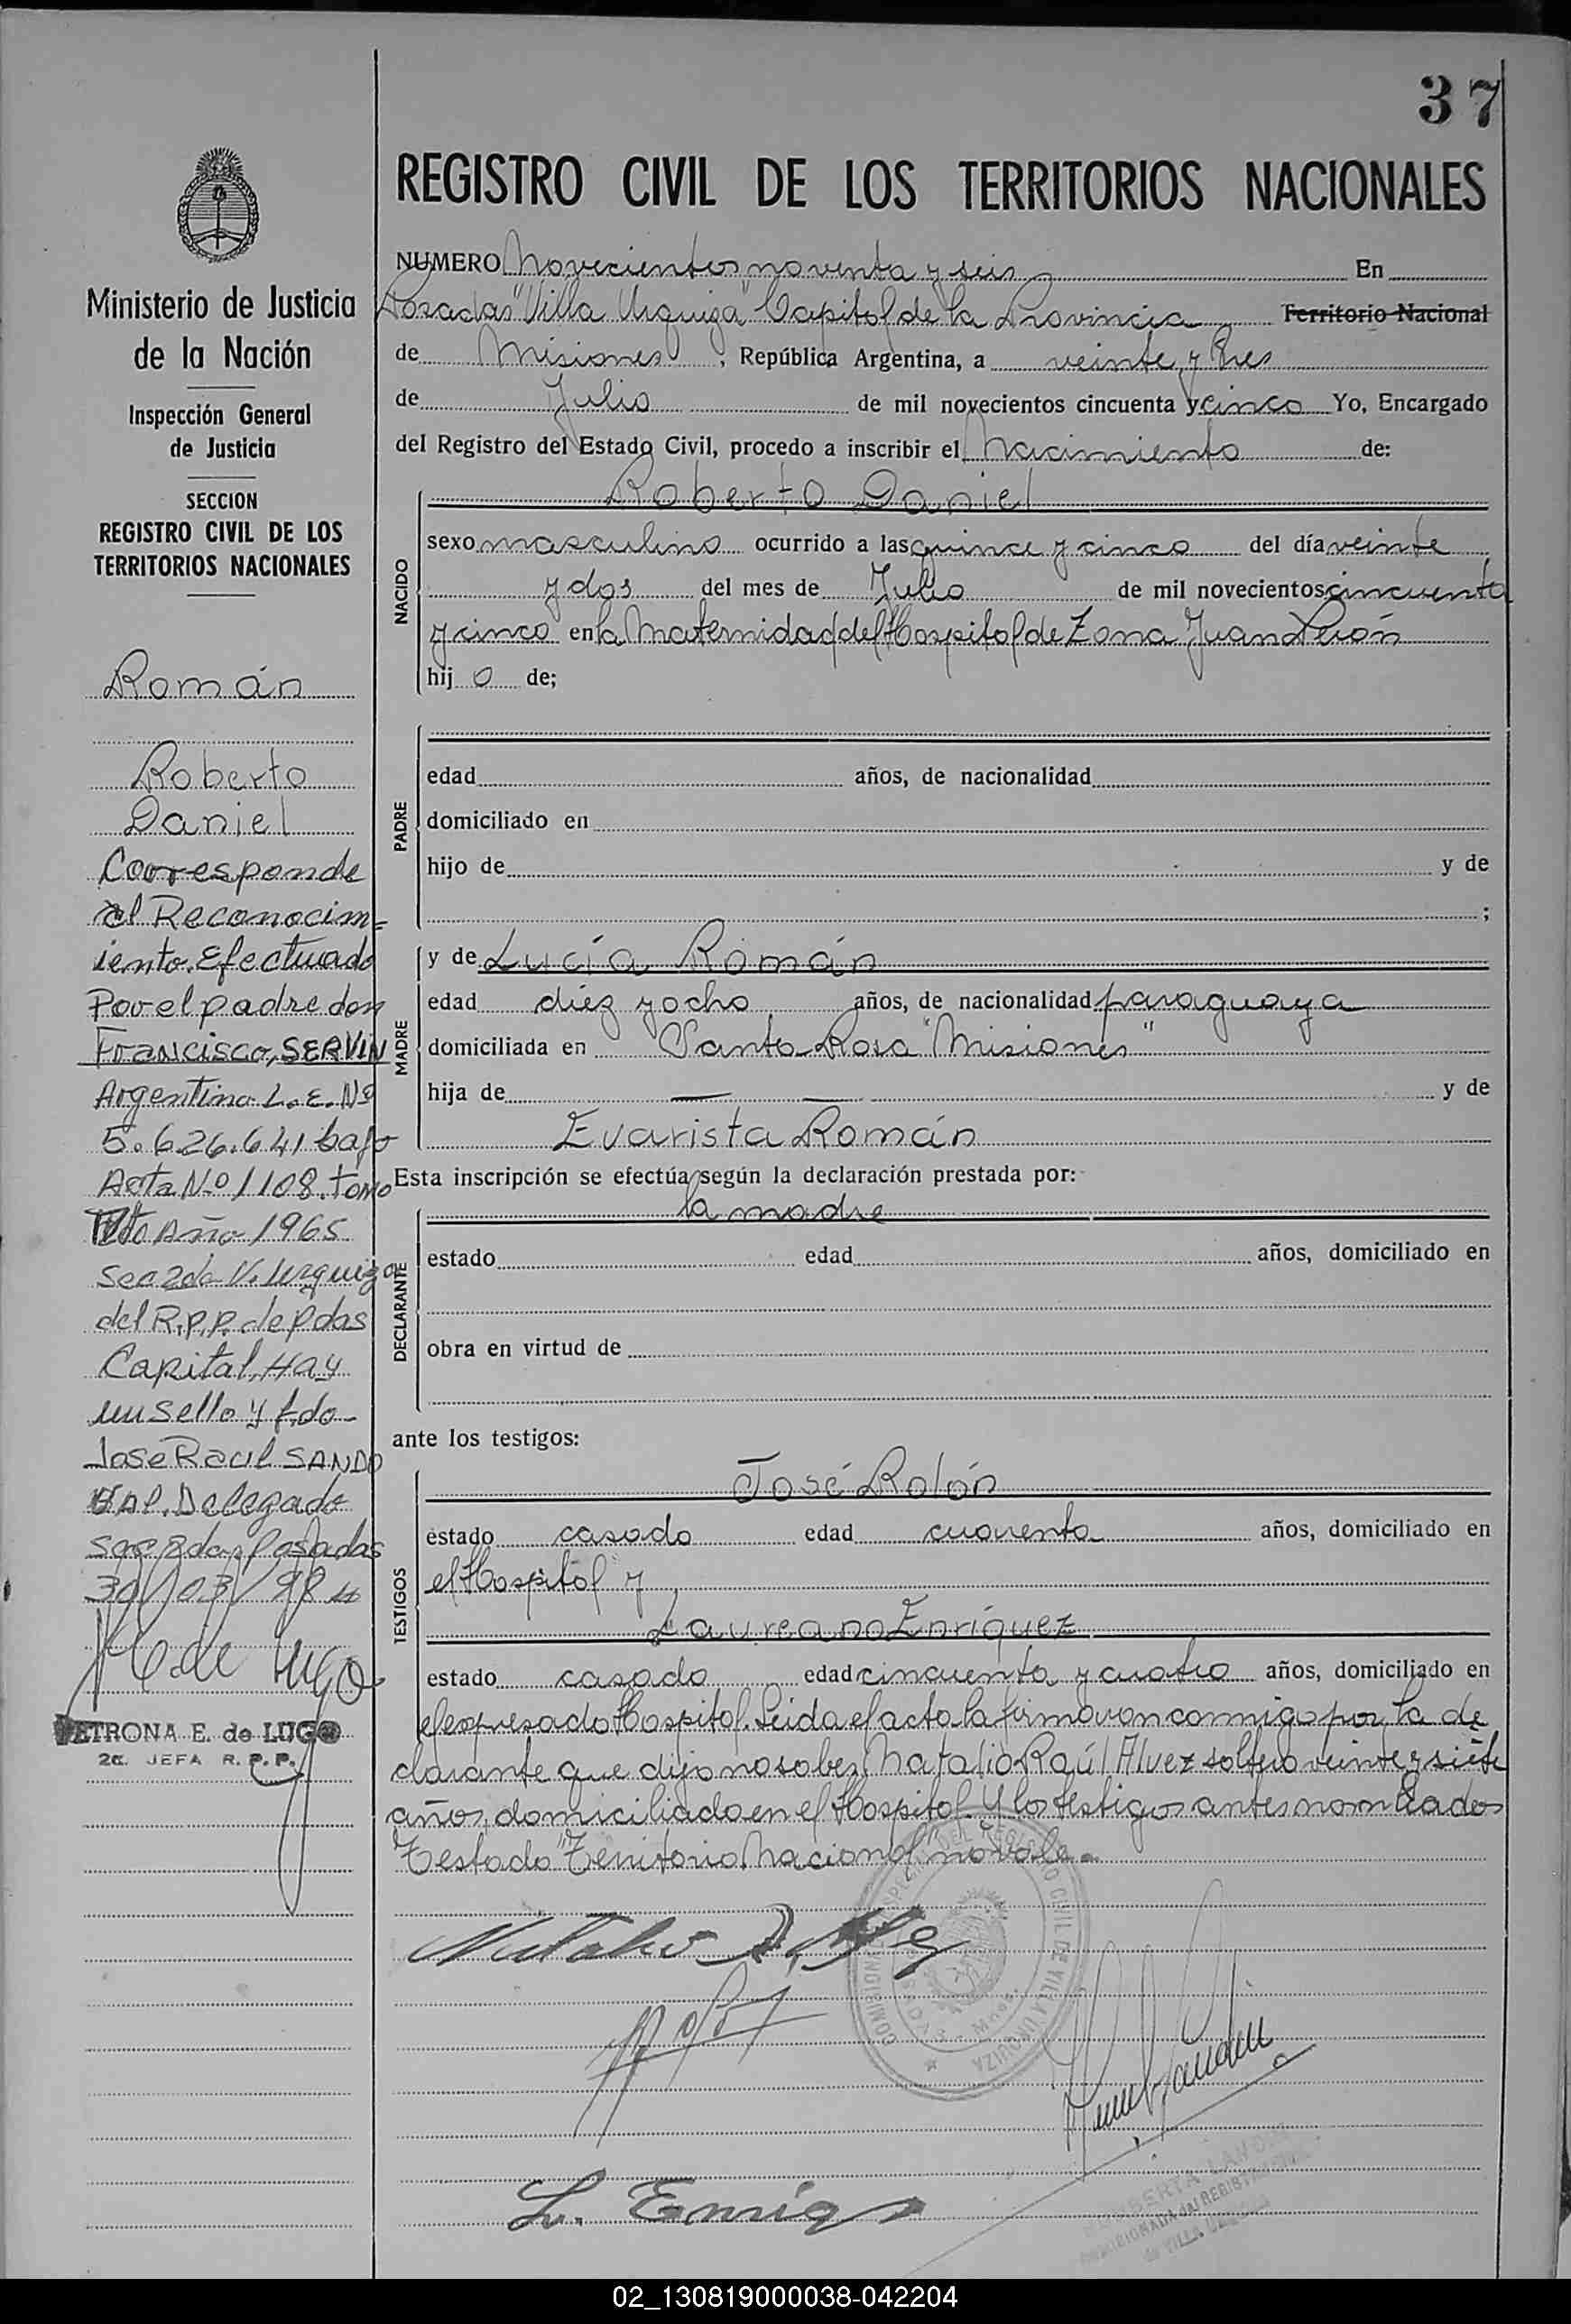 37
REGISTRO CIVIL DE LOS TERRITORIOS NACIONALES
Ministerio de Justicia
de la Nación
Inspección General
de Justicia
SECCION
REGISTRO CIVIL DE LOS
TERRITORIOS NACIONALES
Román
Roberto
Daniel
Corresponde
al Reconocim=
iento. Efectuado
Por el padre don
Francisco, SERVIN
Argentino L. E. Nº
5.626.641 bajo
Acta N.o 1108. tomo
Año 1965
Sec 2da V. Urquiza
del R.P.P. de Pdas
Capital, Hay
un sello y fdo
Jose Raul SANDO
VAL. Delegado
Sec 2da, Posadas
30/03/98
M. de Lugo
PETRONA E. de LUGO
2a. JEFA R. P. P.
NUMERO Novecientos noventa y seis En
Posadas "Villa Urquiza" Capital de la Provincia Territorio Nacional
de Misiones, República Argentina, a veinte y tres
de Julio de mil novecientos cincuenta y cinco Yo, Encargado
del Registro del Estado Civil, procedo a inscribir el Nacimiento de:
NACIDO
Roberto Daniel
sexo masculino ocurrido a las quince y cinco del día veinte
y dos del mes de Julio de mil novecientos cincuenta
y cinco en la Maternidad del Hospital de Zona Juan Perón
hijo de;
PADRE
edad años, de nacionalidad
domiciliado en
hijo de y de
;
MADRE
y de Lucía Román
edad diez y ocho años, de nacionalidad paraguaya
domiciliada en Santa Rosa "Misiones"
hija de — — y de
Evarista Román
Esta inscripción se efectúa según la declaración prestada por:
DECLARANTE
la madre
estado edad años, domiciliado en
obra en virtud de
ante los testigos:
TESTIGOS
José Rolón
estado casado edad cuarenta años, domiciliado en
el Hospital y
Laureano Enríquez
estado casado edad cincuenta y cuatro años, domiciliado en
el expresado Hospital. Leida el acta la firmaron conmigo por la de
clarante que dijo no saber, Natalio Raúl Alvez soltero veinte y siete
años, domiciliado en el Hospital. Y los testigos antes nombrados
Testado "Territorio Nacional" no vale.
COMISIONADA DEL REGISTRO CIVIL DE VILLA URQUIZA
L. Enriqz
COMISIONADA del REGISTRO
de VILLA URQUIZA
02_130819000038-042204